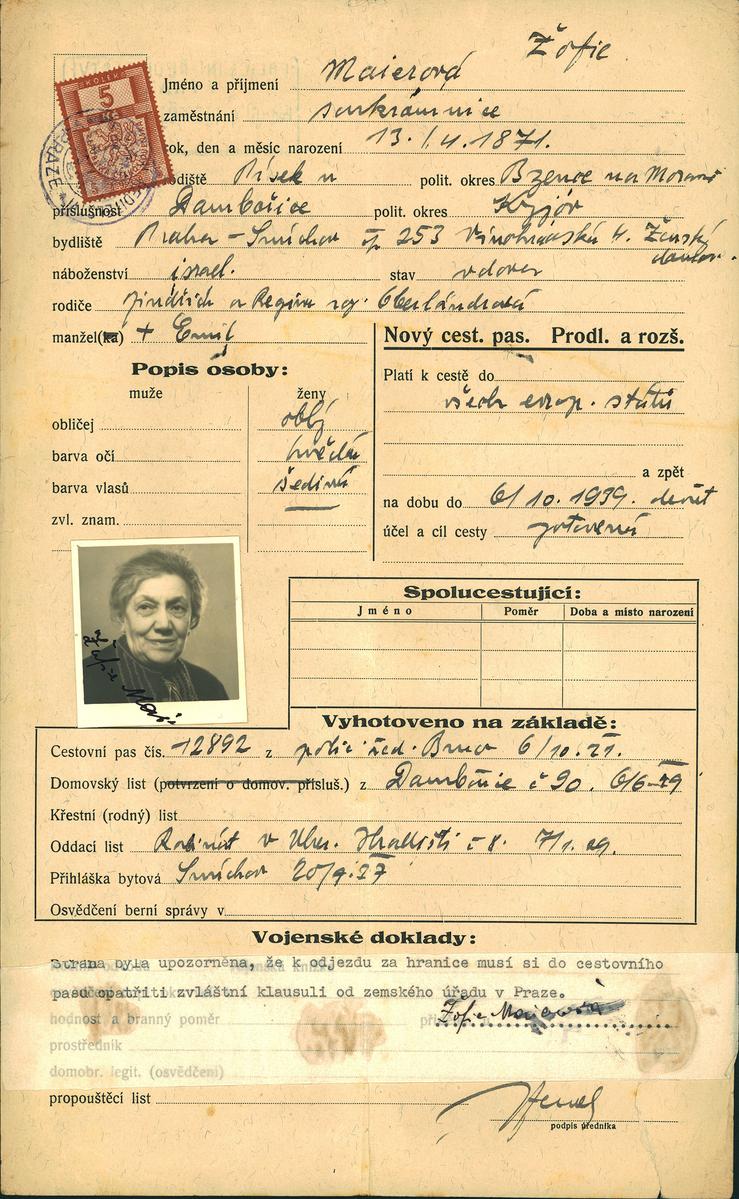 Žofie
KOLEK
5
PRAZE
Jméno a příjmení Maierová
zaměstnání soukromnice
rok, den a měsíc narození 13. 1.4.1871.
rodiště Písek u polit. okres Bzence na Moravě
příslušnost Dambořice polit. okres Kyjov
bydliště Praha - Smíchov čp 253 Vinohradská 4. Ženský
domov.
náboženství israel. stav vdova
rodiče Jindřich a Regina roz. Oberländrová
manžel(ka) + Emil
Nový cest. pas. Prodl. a rozš.
Popis osoby:
muže ženy
obličej oblý
barva očí hnědá
barva vlasů šedivá
zvl. znam.
Platí k cestě do
všech evrop. států
a zpět
na dobu do 6/10.1939.
účel a cíl cesty
Žofie Mai
Spolucestující:
Jméno Poměr Doba a místo narození
Vyhotoveno na základě:
Cestovní pas čís. 12892 z polic. řed. Brno 6/10.21.
Domovský list (potvrzení o domov. přísluš.) z Dambořice č 90. 6/6-29
Křestní (rodný) list
Oddací list Rabinát v Uher. Hradišti č 8. 7/1.09.
Přihláška bytová Smíchov 20/9.27
Osvědčení berní správy v
Vojenské doklady:
Strana byla upozorněna, že k odjezdu za hranice musí si do cestovního
pasu opatřiti zvláštní klausuli od zemského úřadu v Praze.
hodnost a branný poměr Žofie Maierová
prostředník
domobr. legit. (osvědčení)
propouštěcí list
podpis úředníka